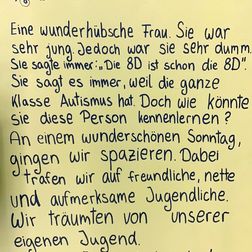 Eine wunderhübsche Frau. Sie war
sehr jung. Jedoch war sie sehr dumm.
Sie sagte immer: „Die 8D ist schon die 8D".
Sie sagt es immer, weil die ganze
Klasse Autismus hat. Doch wie könnte
sie diese Person kennenlernen?
An einem wunderschönen Sonntag,
gingen wir spazieren. Dabei
trafen wir auf freundliche, nette
und aufmerksame Jugendliche.
Wir träumten von unserer
eigenen Jugend.